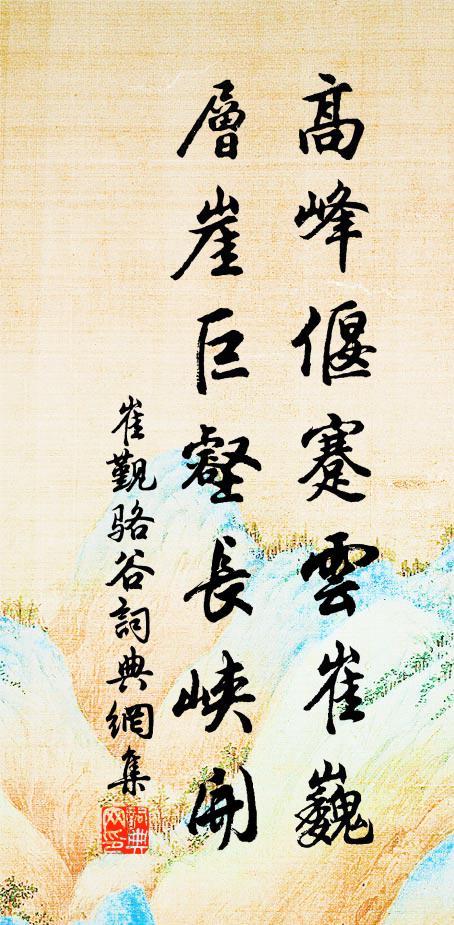 高峰偃蹇雲崔巍
層崖巨壑長峽開
崔覲駱谷詞典網集
詞典
网印